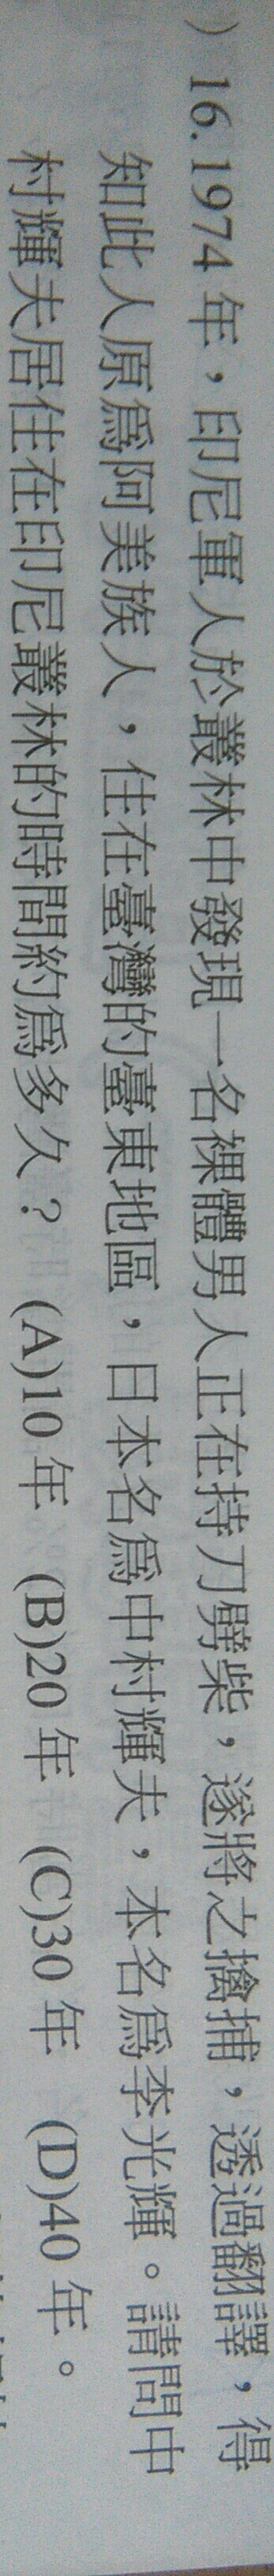 ) 16. 1974 年，印尼軍人於叢林中發現一名裸體男人正在持刀劈柴，遂將之擒捕，透過翻譯，得
知此人原為阿美族人，住在臺灣的臺東地區，日本名為中村輝夫，本名為李光輝。請問中
村輝夫居住在印尼叢林的時間約為多久？ (A)10 年 (B)20 年 (C)30 年 (D)40 年。